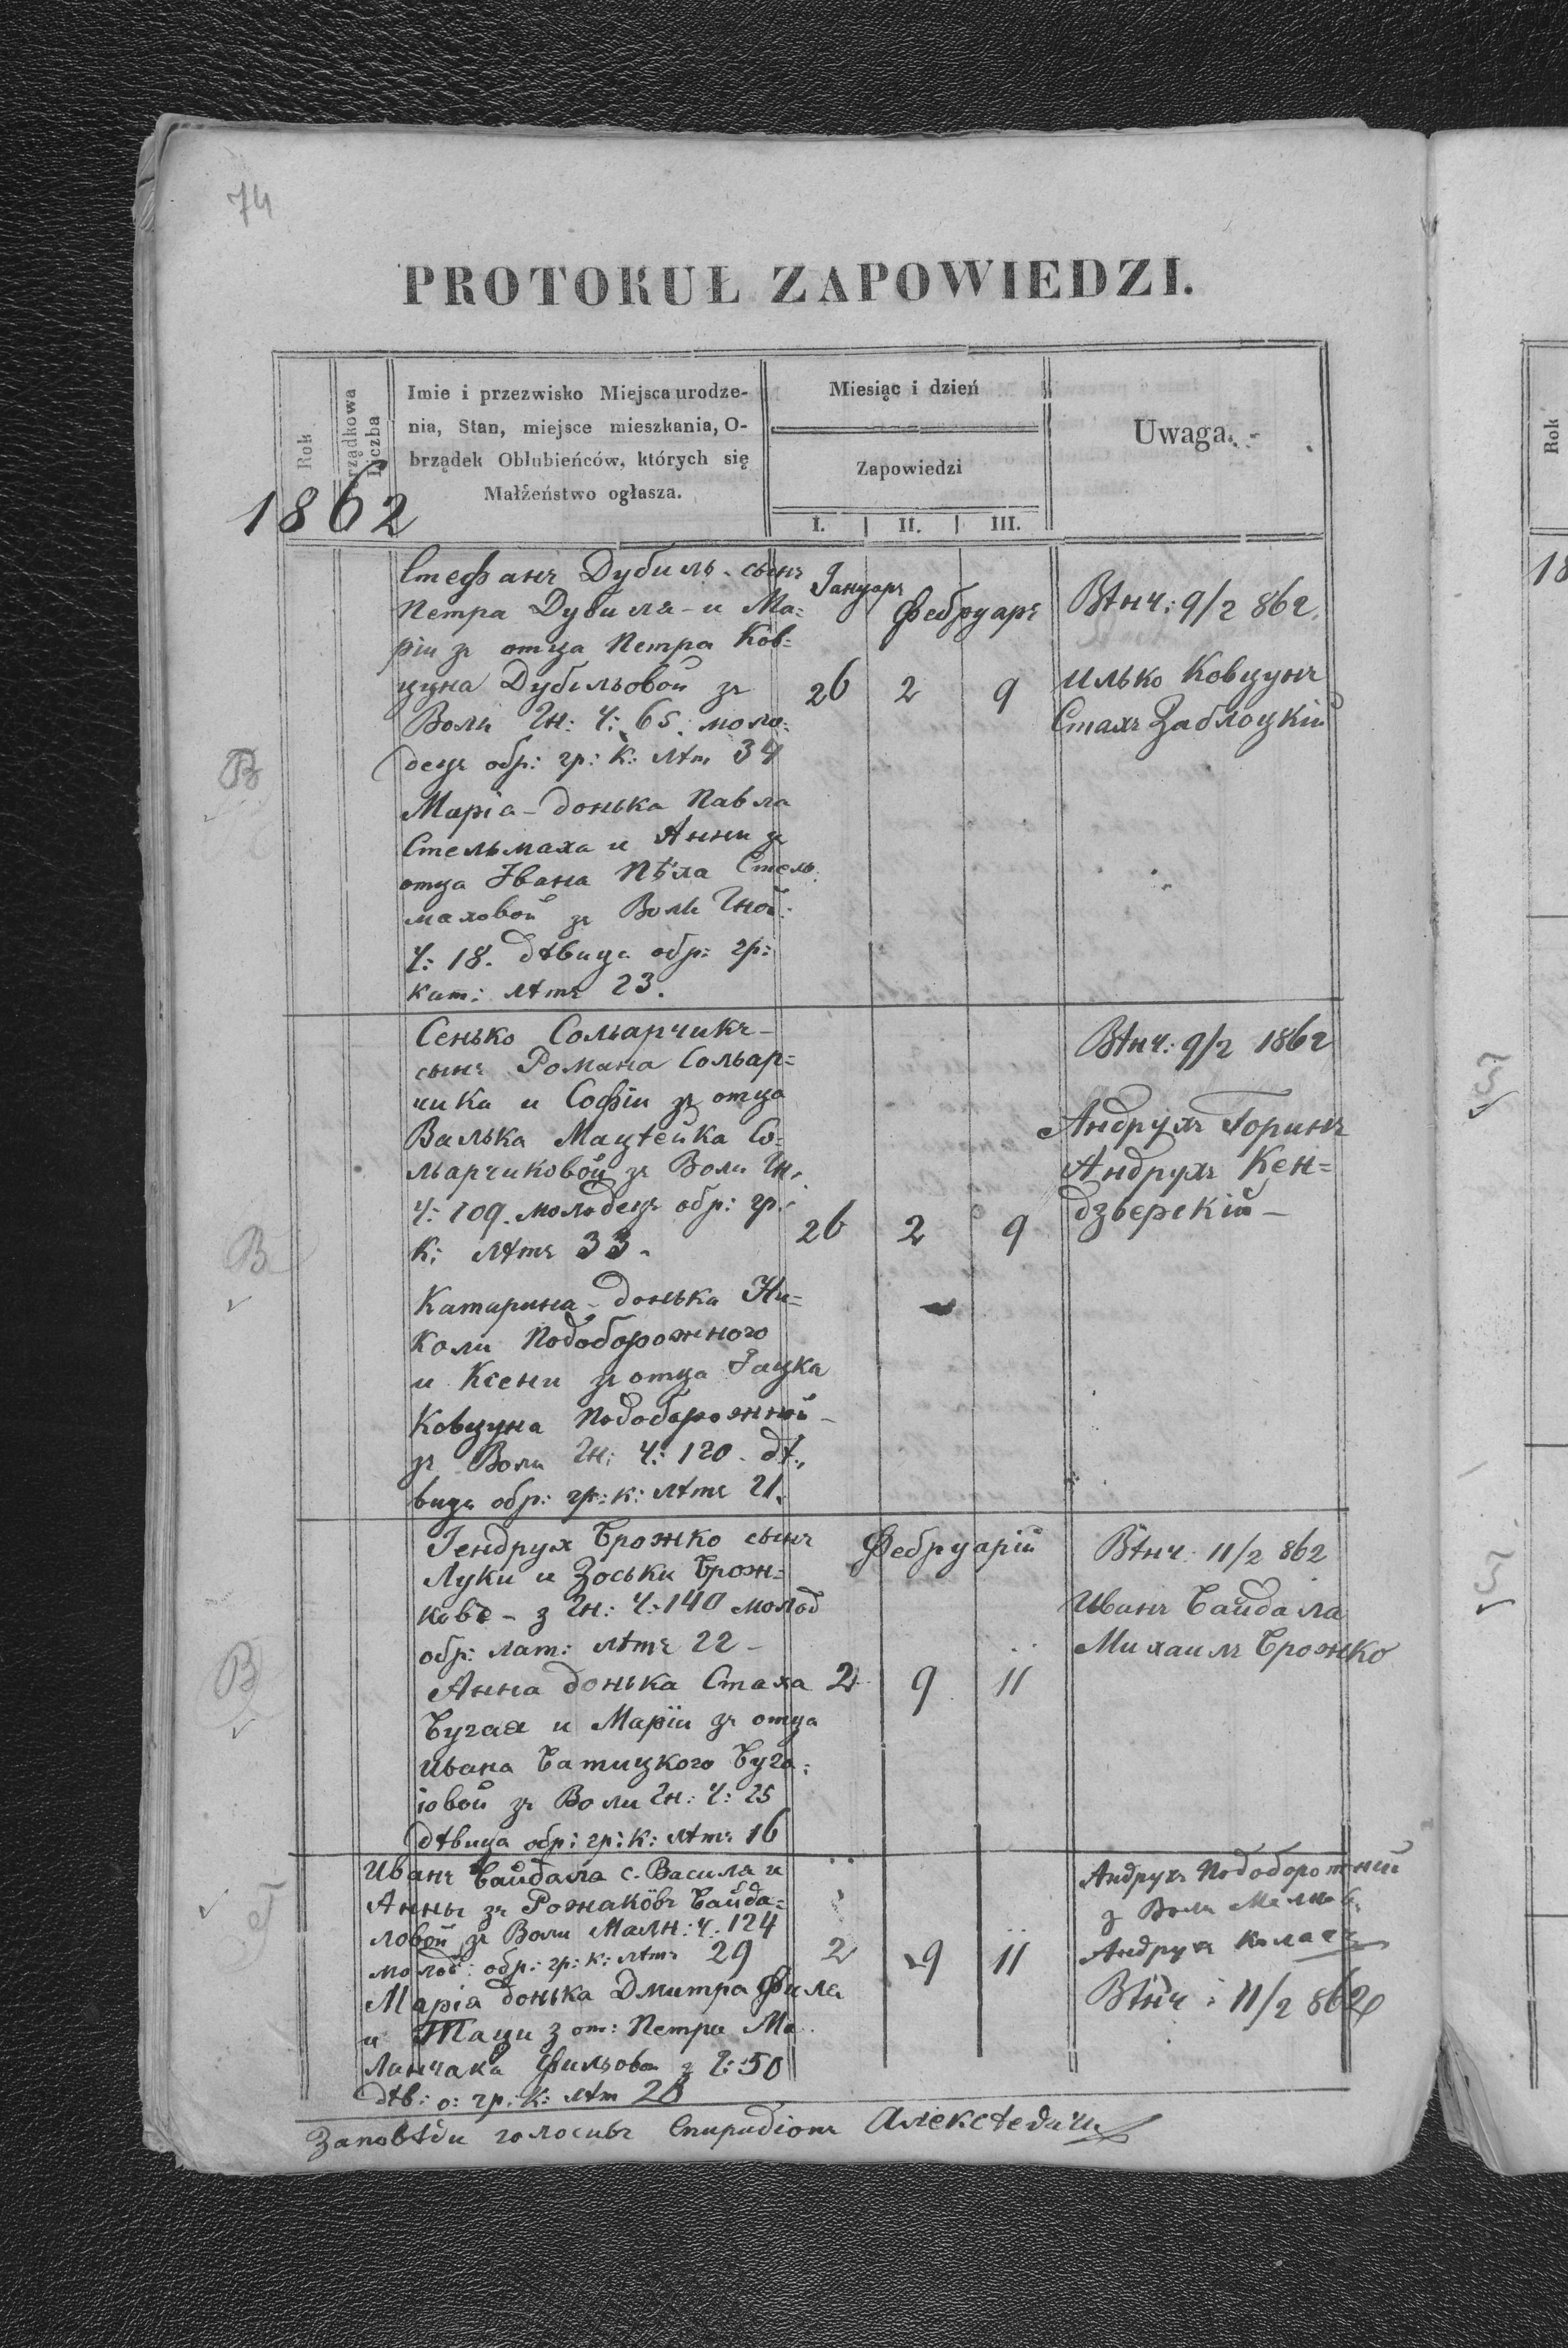 74
PROTOKUŁ ZAPOWIEDZI.
Rok
rządkowa
Liczba
Imie i przezwisko Miejsca urodze-
nia, Stan, miejsce mieszkania, O-
brządek Obłubieńców, których się
Małżeństwo ogłasza.
Miesiąc i dzień
Zapowiedzi
I. II. III.
Uwaga.
1862
Стефанъ Дубиль - сынъ
Петра Дубиля - и Ма=
ріи зъ отца Петра Ков=
цуна Дубильовой зъ
Воли Гн: Ч: 65. моло=
децъ обр: гр: к: лѣт 34
Марія - донька Павла
Стельмаха и Анни зъ
отца Івана Пѣла Стель
маховой зъ Воли Гной:
Ч: 18. дѣвица обр: гр:
кат: лѣтъ 23.
Януаръ
Фебруаръ
26 2 9
Вѣнч: 9/2 862.
Илько Ковцунъ
Стахъ Заблоцкій
В
Сенько Сольарчикъ -
сынъ Романа Сольар=
чика и Софіи зъ отца
Валька Мацѣйка Со=
льарчиковой зъ Воли Гн.
Ч: 109. молодецъ обр: гр:
к: лѣтъ 33.
Катарина - донька Ни=
коли Подоборожного
и Ксени зъ отца Яцка
Ковцуна Подоборожной -
зъ Воли Гн: Ч: 120. дѣ,,
вица обр: гр: к: лѣтъ 21.
26 2 9
Вѣнч: 9/2 1862
Андрухъ Горинъ
Андрухъ Кен=
дзверскій -
В
Гендрух Брожко сынъ
Луки и Зоськи Брож=
ковъ - з Гн: Ч: 140 молод
обр: лат: лѣтъ 22 -
Анна донька Стаха
Бугая и Маріи зъ отца
Ивана Батицкого Буга=
іовой зъ Воли Гн: Ч: 25
дѣвица обр: гр: к: лѣтъ 16
Фебруарій
2 9 11
Вѣнч: 11/2 862
Иванъ Байдала
Михаилъ Брожко
В
Иванъ Байдала с. Василя и
Анны зъ Рожакôвъ Байда=
ловой зъ Воли Малн: Ч: 124
молод: обр: гр: к: лѣтъ 29
Марія донька Дмитра Филя
и Таци з от: Петра Ма
ланчака Фильовой з Ч: 50
дѣв: о: гр: к: лѣт 28
2 9 11
Андрухъ Подоборожний
з Воли Малнов.
Андрухъ
Вѣнч: 11/2 862
Заповѣди голосивъ Спиридіонъ Алексѣевичъ
Rok
18